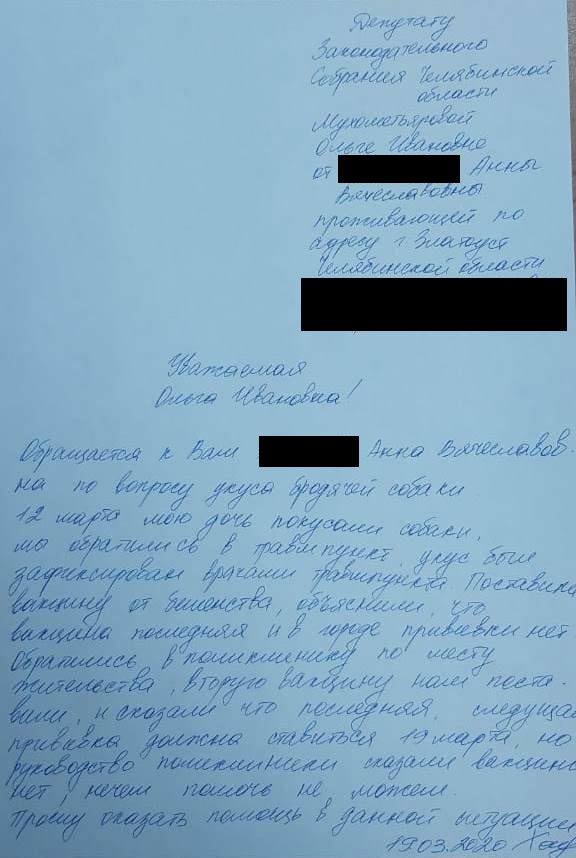 Депутату
Законодательного
Собрания Челябинской
области
Мухометьяровой
Ольге Ивановне
от Анны
Вячеславовны
проживающей по
адресу г. Златоуст
Челябинской области
Уважаемая
Ольга Ивановна!
Обращается к Вам Анна Вячеславов-
на по вопросу укуса бродячей собаки.
12 марта мою дочь покусали собаки,
мы обратились в травмпункт, укус был
зафиксирован врачами травмпункта. Поставили
вакцину от бешенства, объяснили, что
вакцина последняя и в городе прививки нет
Обратились в поликлинику по месту
жительства, вторую вакцину нам поста-
вили, и сказали что последняя, следущая
прививка должна ставиться 19 марта, но
руководство поликлиники сказали вакцины
нет, нечем помочь не можем.
Прошу оказать помощь в данной ситуации
19.03.2020